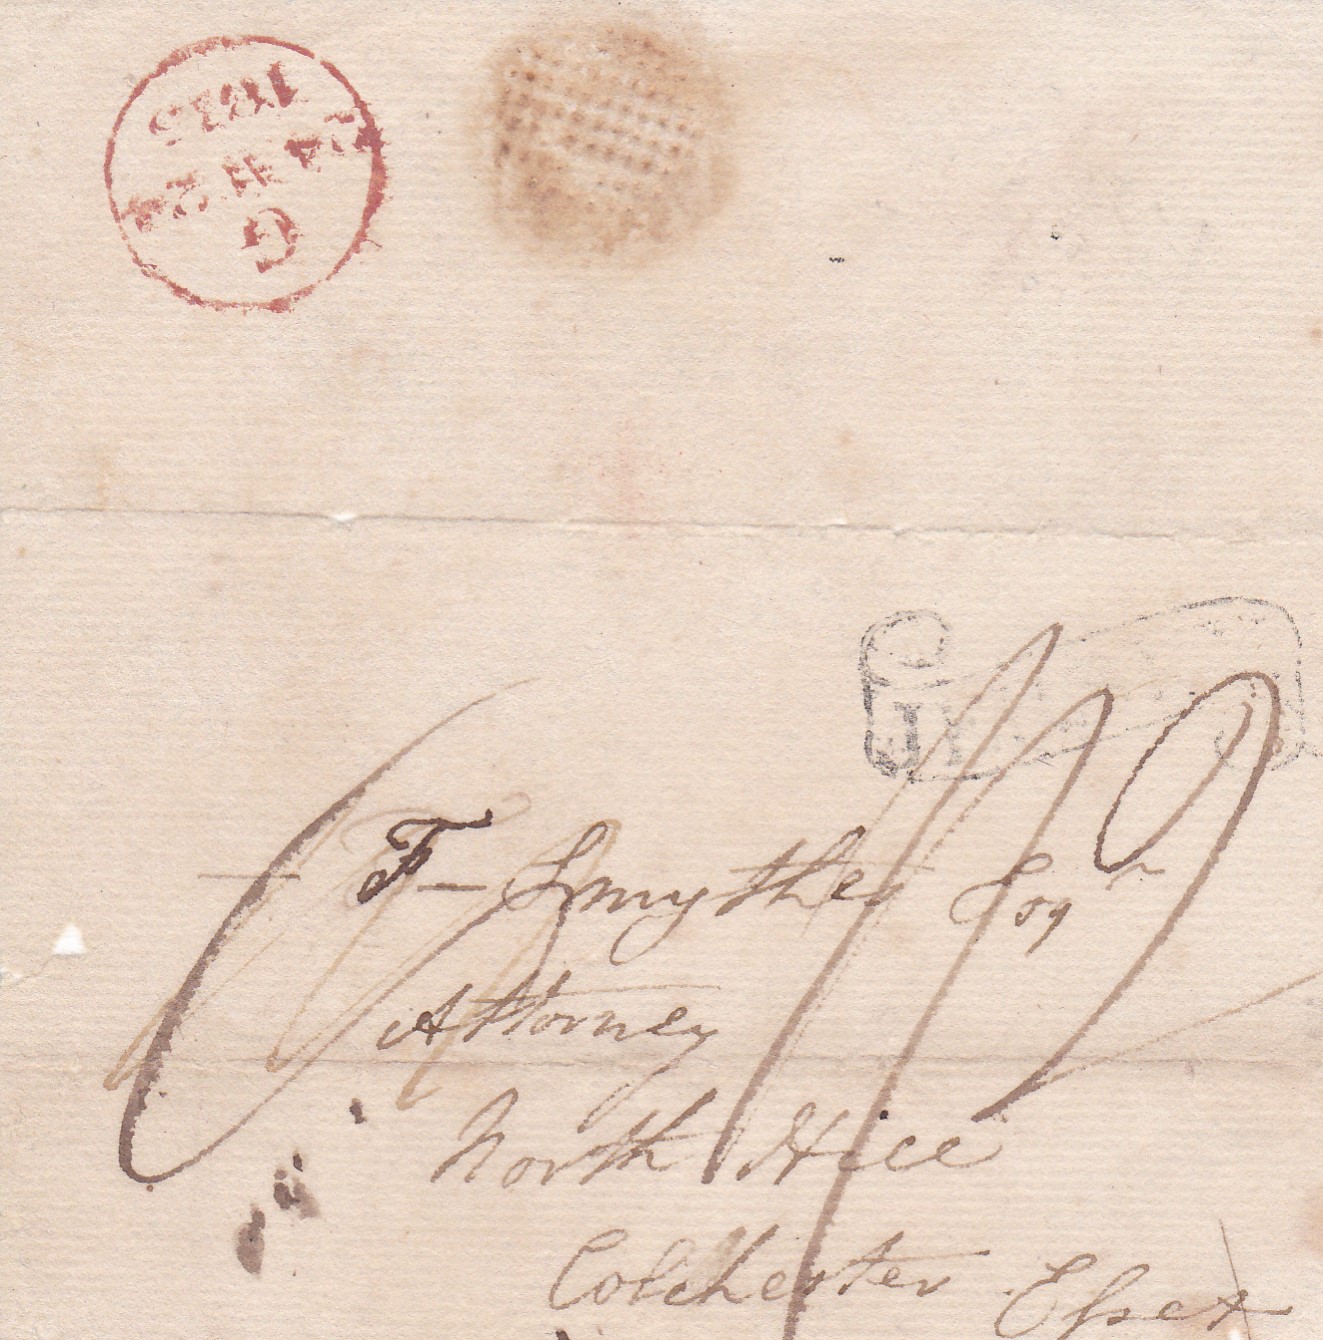 G
24 24
1815
F - Smythe Esqr
Attorney
North Hill
Colchester Essex